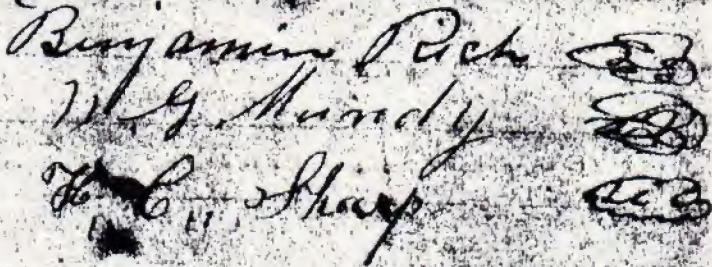 Benjamin Rich
W. G. Mundy
H. C. Sharp